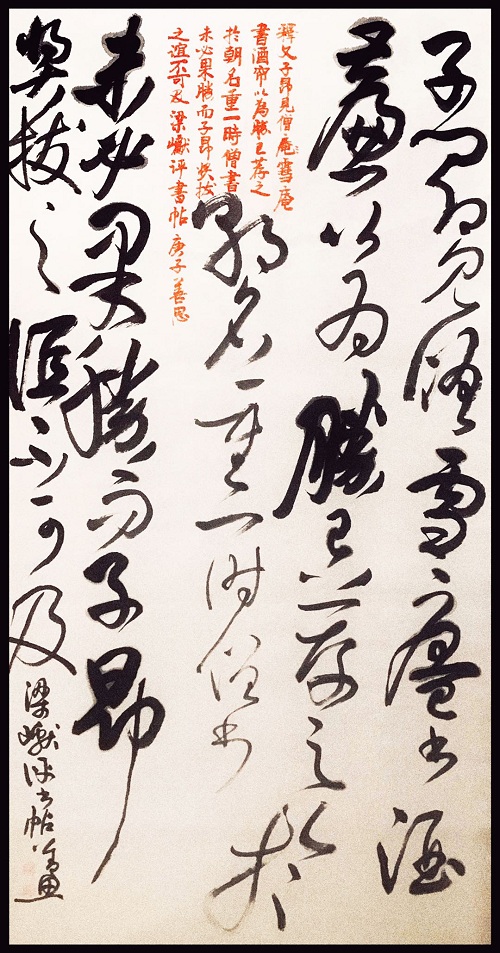 子昂見僧雪庵书酒
簾以为勝己荐之於
朝名重一时僧书
未必果勝而子昂
奬拔之谊不可及
梁巘评书帖善思
釋文子昂見僧庵雪庵
書酒帘以為勝己荐之
於朝名重一時僧書
未必果勝而子昂奬拔
之誼不可及梁巘评書帖 庚子善思